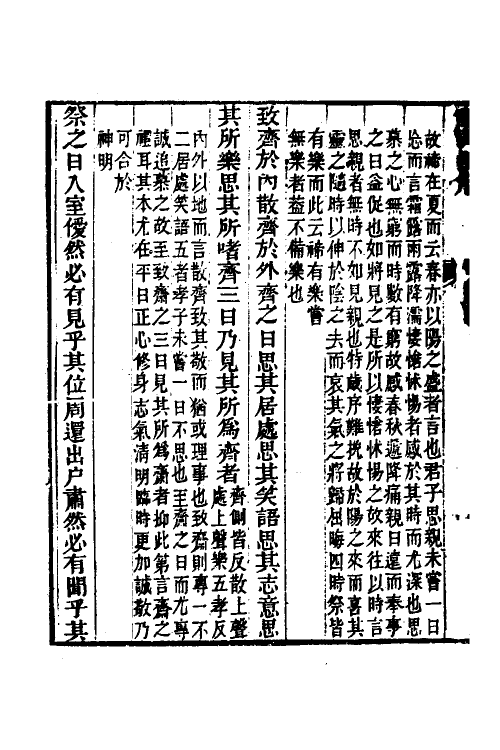 故禘在夏而云春亦以陽之盛者言也君子思親未嘗一日
忘而言霜露雨露降濡悽愴怵惕者感於其時而尤深也思
慕之心無窮而時數有窮故感春秋遞降痛親日遠而奉事
之日益促也如將見之是所以悽愴怵惕之故來往以時言
思親者無時不如見親也特歲序難挽故於陽之來而喜其
靈之隨時以伸於陰之去而哀其氣之將歸屈晦四時祭皆
有樂而此云禘有樂嘗
無樂者葢不備樂也
致齊於內散齊於外齊之日思其居處思其笑語思其志意思
其所樂思其所嗜齊三日乃見其所為齊者
齊側皆反散上聲
處上聲樂五孝反
內外以地而言散齊致其敬而猶或理事也致齋則專一不
二居處笑語五者孝子未嘗一日不思也至齋之日而尤專
誠追慕之故至致齋之三日見其所為齋者抑此第言齋之
禋耳其本尤在平日正心修身志氣清明臨時更加誠敬乃
可合於
神明
祭之日入室僾然必有見乎其位周還出户肅然必有聞乎其